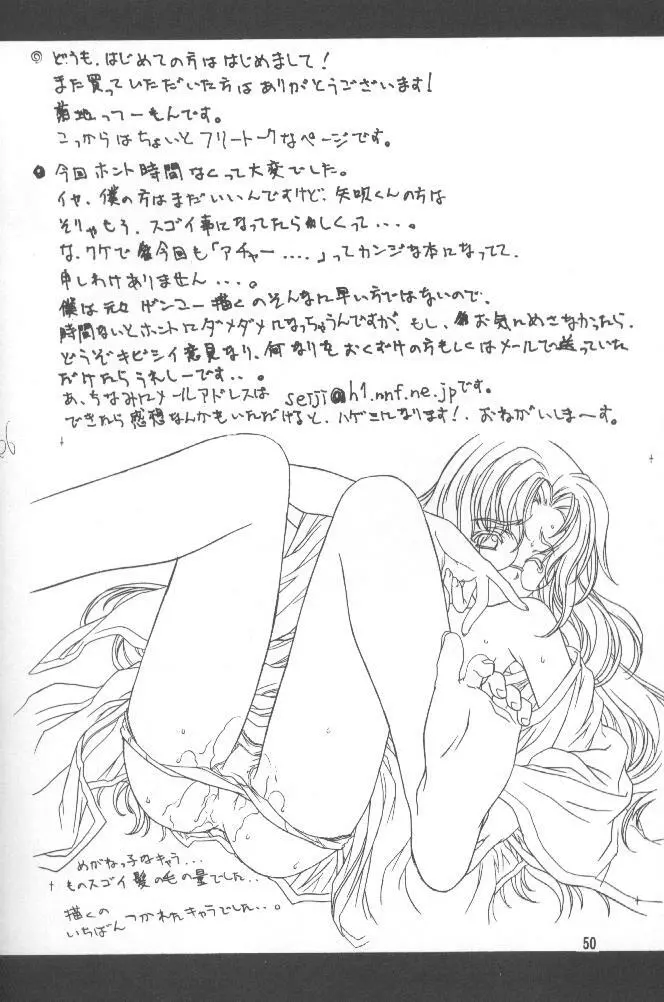 ◎ どうも、はじめての方ははじめまして!
また買っていただいた方はありがとうございます!
菊地ってーもんです。
こっからはちょいとフリートークなページです。
● 今回ホント時間なくって大変でした。
イヤ、僕の方はまだいいんですけど、矢吹くんの方は
そりゃもう、スゴイ事になってたらしくって・・・。
な、ワケで今回も「アチャー・・・・」ってカンジな本になってて、
申しわけありません・・・。
僕は元々ゲンコー描くのそんなに早い方ではないので、
時間ないとホントにダメダメになっちゃうんですが、もし、お気にめさなかったら、
どうぞキビシイ意見なり、何なりをおくずけの方もしくはメールで送っていた
だけたらうれしーです・・。
あ、ちなみにメールアドレスは seiji@h1.nnf.ne.jpです。
できたら感想なんかもいただけると、ハゲミになります!、おねがいしまーす。
めがねっ子なキャラ・・・
ものスゴイ髪の毛の量でした・・
描くの
いちばんつかれたキャラでした・・。
50